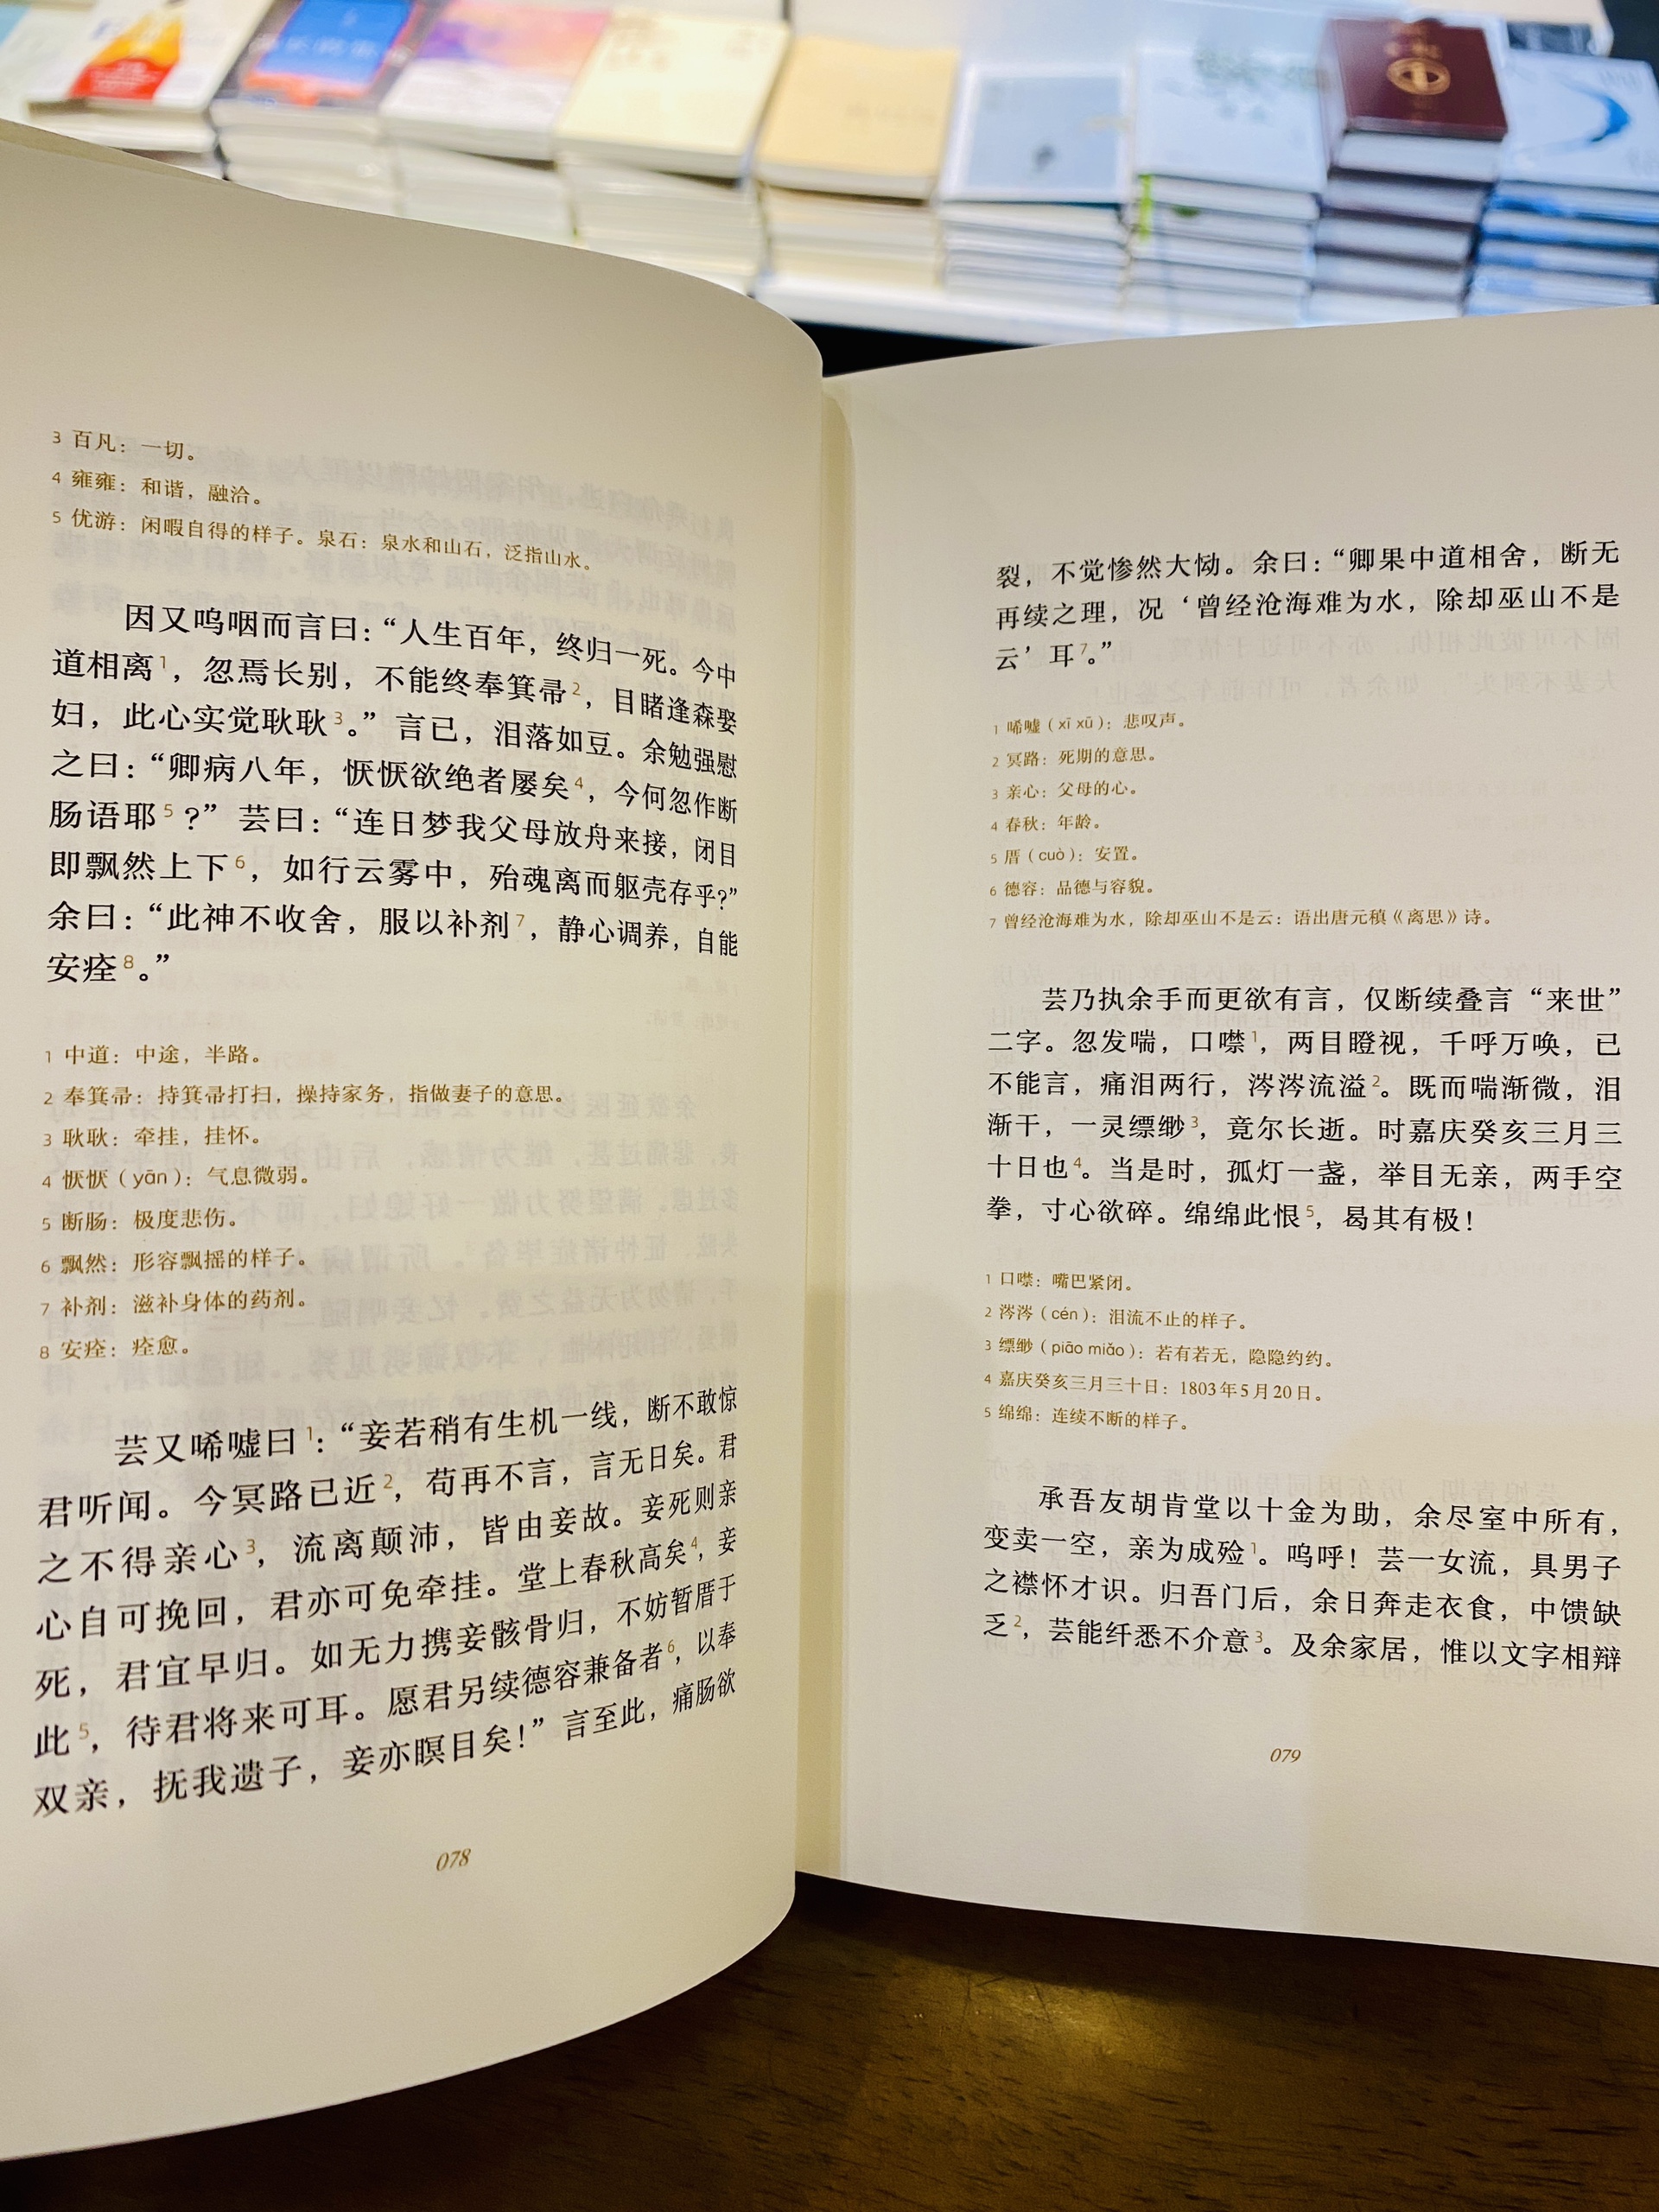 3 百凡：一切。
4 雍雍：和谐，融洽。
5 优游：闲暇自得的样子。泉石：泉水和山石，泛指山水。
因又呜咽而言曰：“人生百年，终归一死。今中
道相离1，忽焉长别，不能终奉箕帚2，目睹逢森娶
妇，此心实觉耿耿3。”言已，泪落如豆。余勉强慰
之曰：“卿病八年，恹恹欲绝者屡矣4，今何忽作断
肠语耶5？”芸曰：“连日梦我父母放舟来接，闭目
即飘然上下6，如行云雾中，殆魂离而躯壳存乎？”
余曰：“此神不收舍，服以补剂7，静心调养，自能
安痊8。”
1 中道：中途，半路。
2 奉箕帚：持箕帚打扫，操持家务，指做妻子的意思。
3 耿耿：牵挂，挂怀。
4 恹恹（yān）：气息微弱。
5 断肠：极度悲伤。
6 飘然：形容飘摇的样子。
7 补剂：滋补身体的药剂。
8 安痊：痊愈。
芸又唏嘘曰1：“妾若稍有生机一线，断不敢惊
君听闻。今冥路已近2，苟再不言，言无日矣。君
之不得亲心3，流离颠沛，皆由妾故。妾死则亲
心自可挽回，君亦可免牵挂。堂上春秋高矣4，妾
死，君宜早归。如无力携妾骸骨归，不妨暂厝于
此5，待君将来可耳。愿君另续德容兼备者6，以奉
双亲，抚我遗子，妾亦瞑目矣！”言至此，痛肠欲
078
裂，不觉惨然大恸。余曰：“卿果中道相舍，断无
再续之理，况‘曾经沧海难为水，除却巫山不是
云’耳7。”
1 唏嘘（xī xū）：悲叹声。
2 冥路：死期的意思。
3 亲心：父母的心。
4 春秋：年龄。
5 厝（cuò）：安置。
6 德容：品德与容貌。
7 曾经沧海难为水，除却巫山不是云：语出唐元稹《离思》诗。
芸乃执余手而更欲有言，仅断续叠言“来世”
二字。忽发喘，口噤1，两目瞪视，千呼万唤，已
不能言，痛泪两行，涔涔流溢2。既而喘渐微，泪
渐干，一灵缥缈3，竟尔长逝。时嘉庆癸亥三月三
十日也4。当是时，孤灯一盏，举目无亲，两手空
拳，寸心欲碎。绵绵此恨5，曷其有极！
1 口噤：嘴巴紧闭。
2 涔涔（cén）：泪流不止的样子。
3 缥缈（piāo miǎo）：若有若无，隐隐约约。
4 嘉庆癸亥三月三十日：1803年5月20日。
5 绵绵：连续不断的样子。
承吾友胡肯堂以十金为助，余尽室中所有，
变卖一空，亲为成殓1。呜呼！芸一女流，具男子
之襟怀才识。归吾门后，余日奔走衣食，中馈缺
乏2，芸能纤悉不介意3。及余家居，惟以文字相辩
079